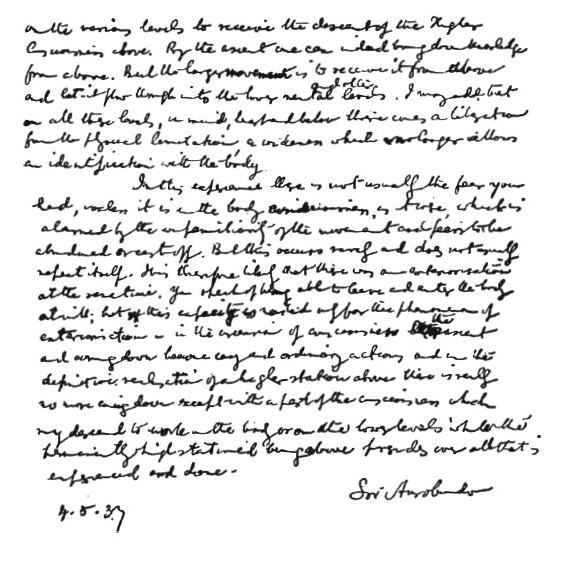 on the various levels to receive the descent of the Higher
Consciousness above. By the ascent one can indeed bring down knowledge
from above. But the larger movement is to receive it from above
and let it flow through into the lower mental and other levels. I may add that
on all these levels, in mind, heart and below there comes a liberation
from the physical limitation, a wideness which no longer allows
an identification with the body.
In this experience there is not usually the fear you
had, unless it is in the body consciousness, as it were, which is
alarmed by the unfamiliarity of the movement and fears to be
abandoned or cast off. But this occurs rarely and does not usually
repeat itself. It is therefore likely that there was an exteriorisation
at the same time. You speak of being able to leave and enter the body
at will; but this capacity is needed only for the phenomenon of
exteriorisation — in the ascension of consciousness the ascent
and coming down become easy and ordinary actions and in the
definitive realisation of a higher station above there is really
no more coming down except with a part of the consciousness which
may descend to work in the body or on the lower levels while the
permanently high stationed being above presides over all that is
experienced and done.
Sri Aurobindo
4.5.37